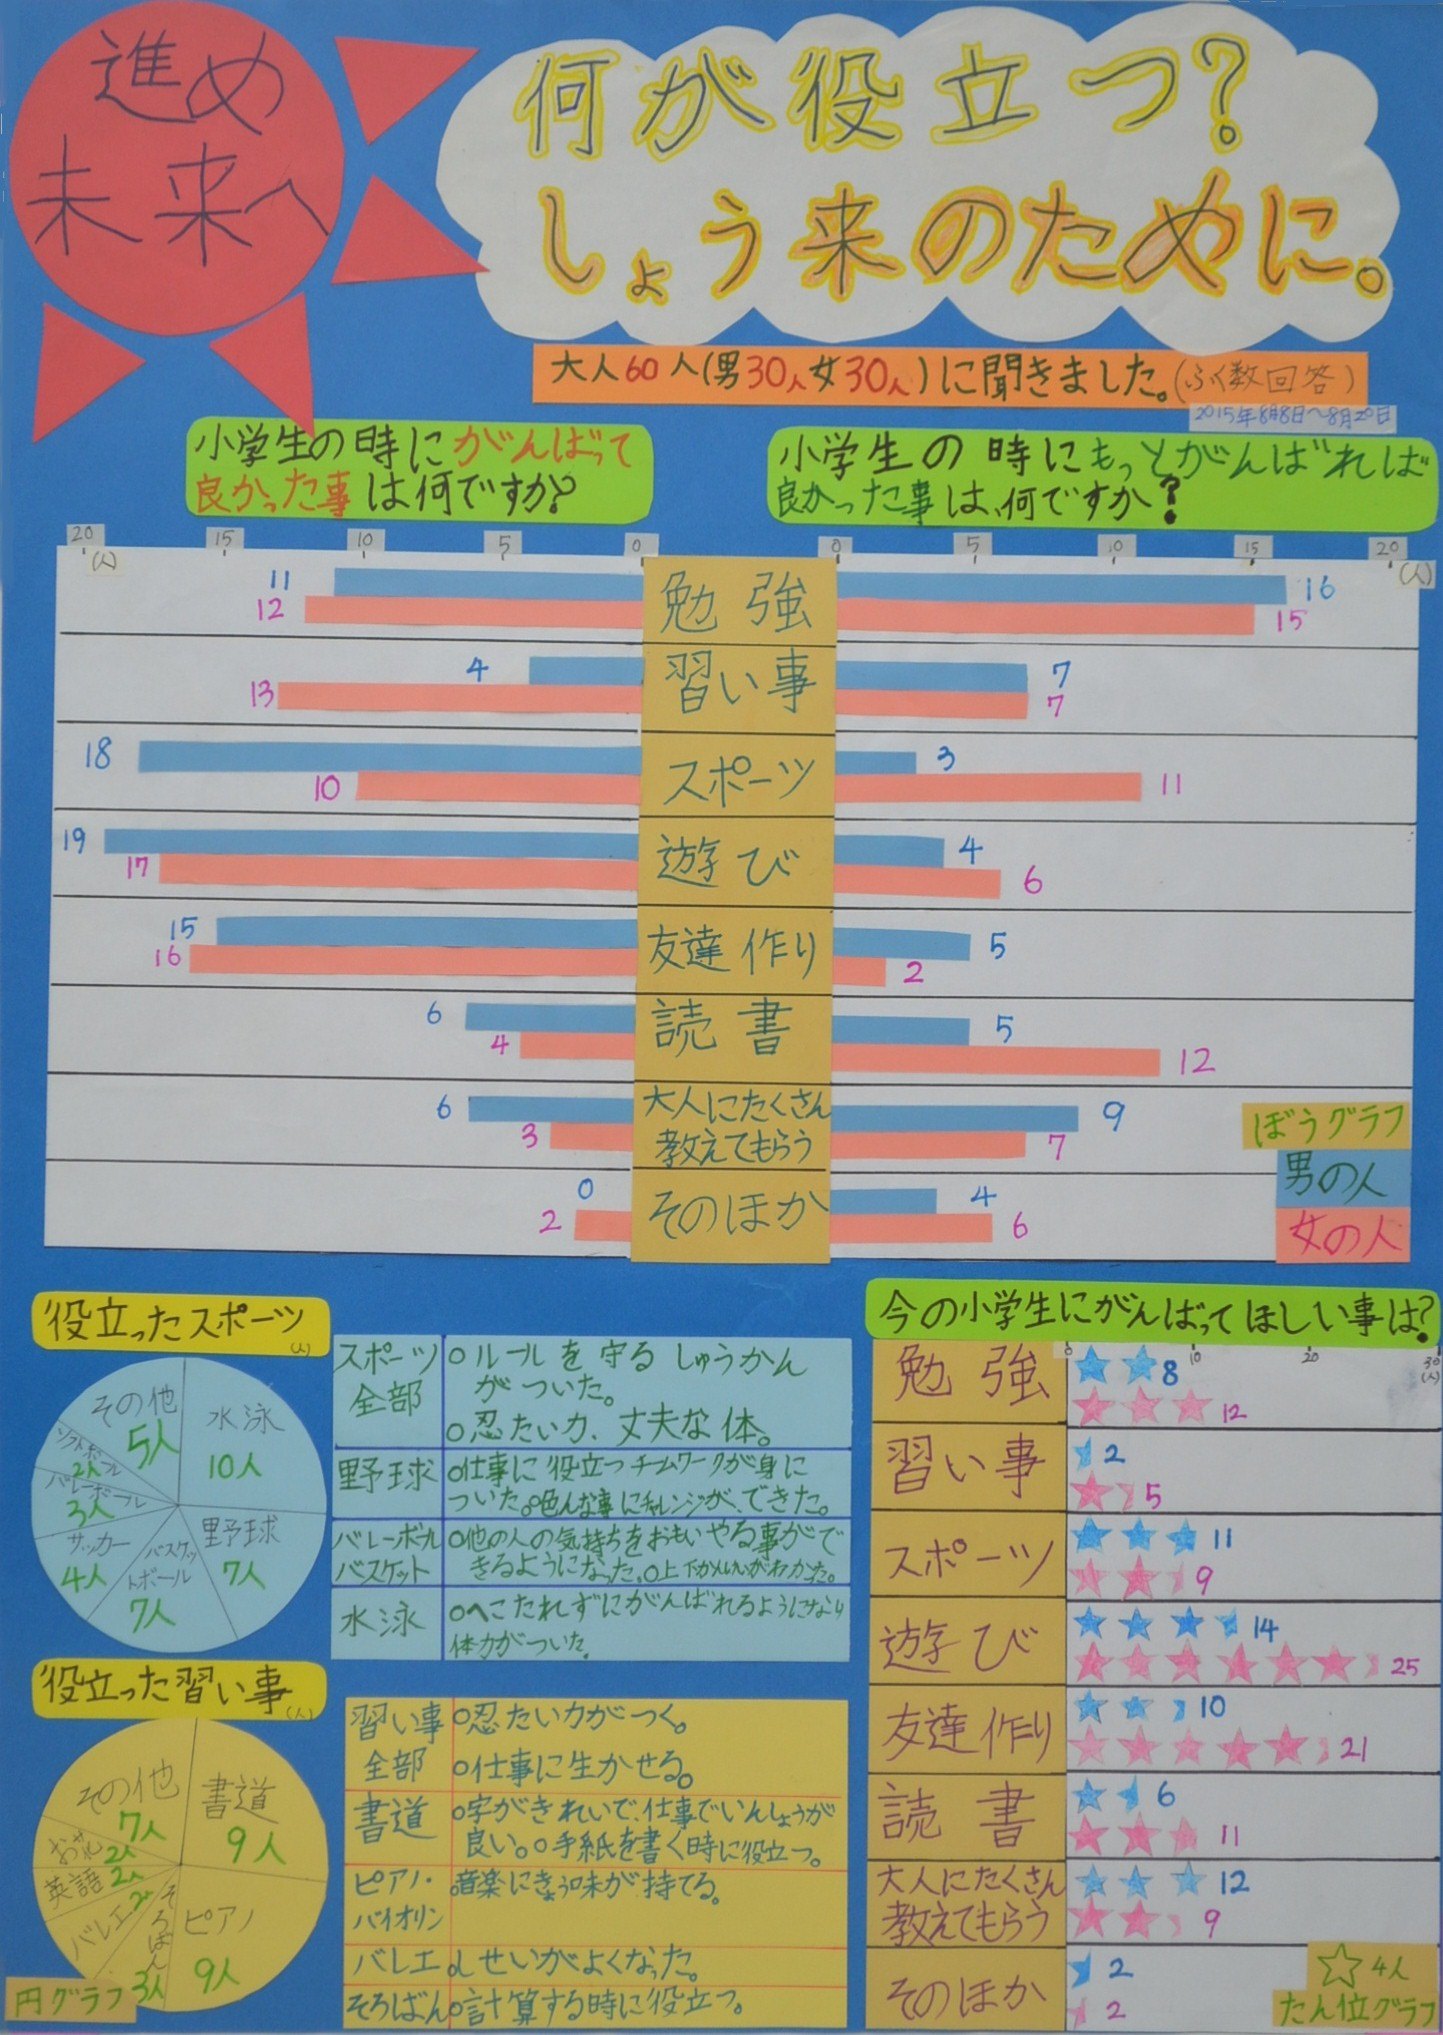 進め
未来へ
何が役立つ?
しょう来のために。
大人60人(男30人女30人)に聞きました。(ふく数回答)
2015年8月8日〜8月20日
小学生の時にがんばって
良かった事は何ですか?
小学生の時にもっとがんばれば
良かった事は、何ですか?
20 15 10 5 0
(人)
0 5 10 15 20
(人)
11 勉強 16
12 15
4 習い事 7
13 7
18 スポーツ 3
10 11
19 遊び 4
17 6
15 友達作り 5
16 2
6 読書 5
4 12
6 大人にたくさん 9
3 教えてもらう 7
0 そのほか 4
2 6
ぼうグラフ
男の人
女の人
役立ったスポーツ
(人)
水泳
10人
野球
7人
バスケッ
トボール
7人
サッカー
4人
バレーボール
3人
ソフトボール
2人
その他
5人
スポーツ
全部
○ルールを守るしゅうかん
がついた。
○忍たい力、丈夫な体。
野球
○仕事に役立つチームワークが身に
ついた。○色んな事にチャレンジが、できた。
バレーボール
バスケット
○他の人の気持ちをおもいやる事がで
きるようになった。○上下かんけいがわかった。
水泳
○へこたれずにがんばれるようになり
体力がついた。
役立った習い事
(人)
書道
9人
ピアノ
9人
そろばん
3人
バレエ
2人
英語
2人
お花
2人
その他
7人
円グラフ
習い事
全部
○忍たい力がつく。
○仕事に生かせる。
書道
○字がきれいで、仕事でいんしょうが
良い。○手紙を書く時に役立つ。
ピアノ・
バイオリン
○音楽にきょう味が持てる。
バレエ
○しせいがよくなった。
そろばん
○計算する時に役立つ。
今の小学生にがんばってほしい事は?
0 10 20 30
(人)
勉強 8
12
習い事 2
5
スポーツ 11
9
遊び 14
25
友達作り 10
21
読書 6
11
大人にたくさん 12
教えてもらう 9
そのほか 2
2
☆4人
たん位グラフ